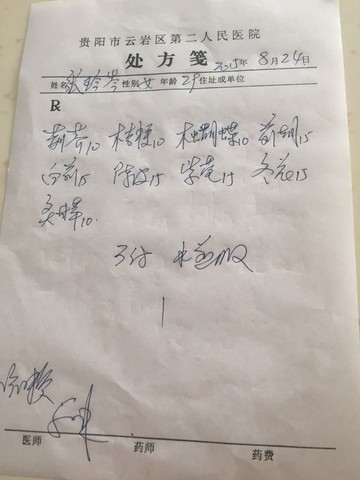 贵阳市云岩区第二人民医院
处方笺 2025年 8月24日
姓名 张 芩 性别 女 年龄 29 住址或单位
R
荆芥10 桔梗10 木蝴蝶10 前胡15
白前15 陈皮15 紫菀15 冬花15
炙 10.
3付 水煎服
医师 药师 药费